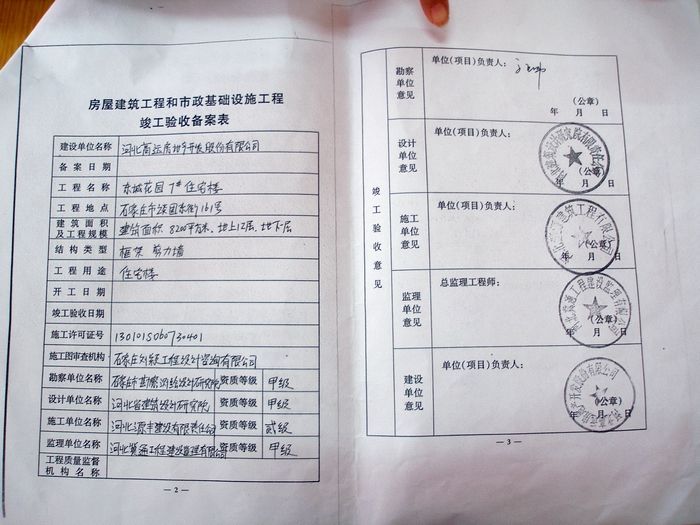 房屋建筑工程和市政基础设施工程
竣工验收备案表
建设单位名称 河北高远房地产开发股份有限公司
备案日期
工程名称 东城花园 7# 住宅楼
工程地点 石家庄市谈固东街161号
建筑面积及工程规模 建筑面积 8200平方米、地上12层、地下层
结构类型 框架 剪力墙
工程用途 住宅楼
开工日期
竣工验收日期
施工许可证号 130101S060730401
施工图审查机构 石家庄 工程设计咨询有限公司
勘察单位名称 石家庄市勘察测绘设计研究院 资质等级 甲级
设计单位名称 河北省建筑设计研究院 资质等级 甲级
施工单位名称 河北源丰建设有限责任公司 资质等级 贰级
监理单位名称 河北冀通工程建设监理有限公司 资质等级 甲级
工程质量监督机构名称
— 2 —
竣工验收意见
勘察单位意见
单位(项目)负责人：
(公章)
年 月 日
设计单位意见
单位(项目)负责人：
施工单位意见
单位(项目)负责人：
(公章)
年 月 日
监理单位意见
总监理工程师：
(公章)
年 月 日
建设单位意见
单位(项目)负责人：
(公章)
年 月 日
— 3 —